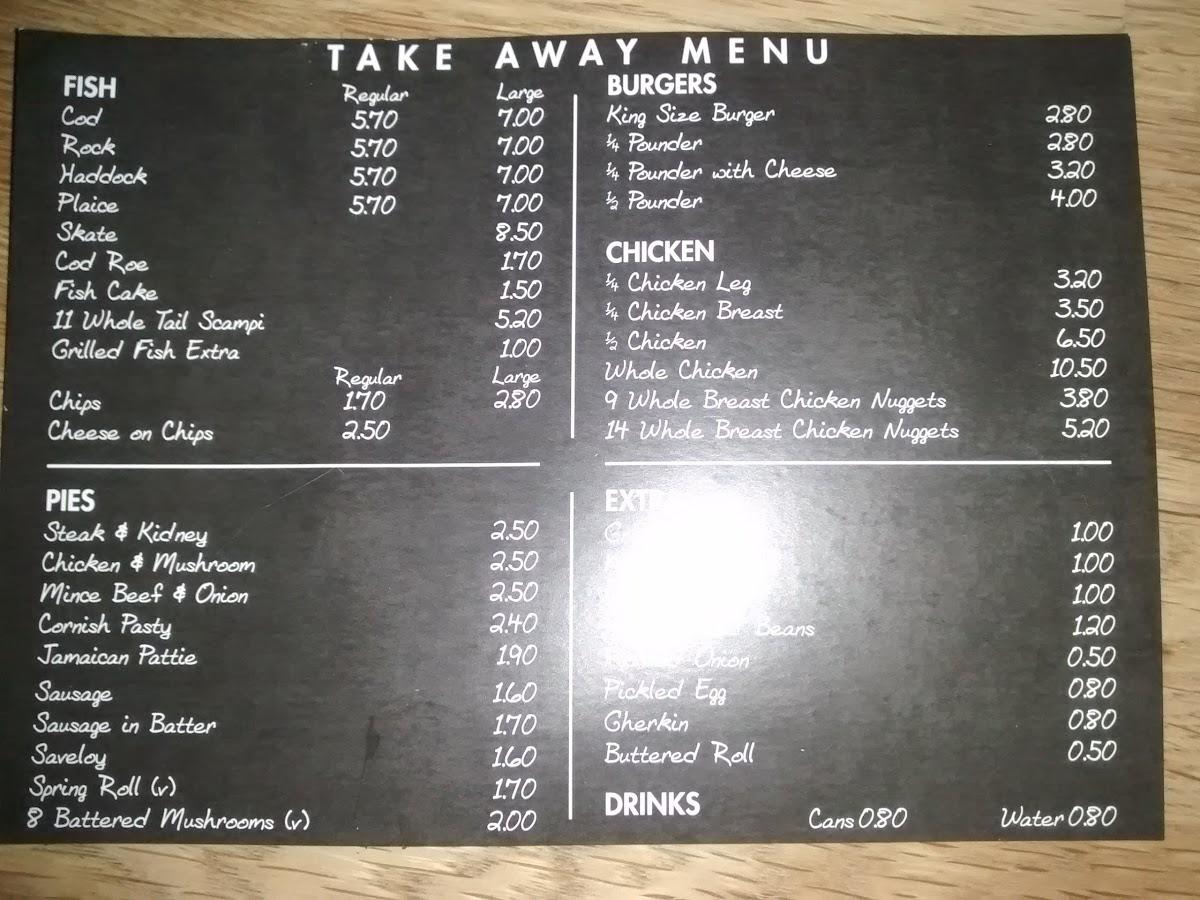 TAKE AWAY MENU
FISH Regular Large
Cod 5.70 7.00
Rock 5.70 7.00
Haddock 5.70 7.00
Plaice 5.70 7.00
Skate 8.50
Cod Roe 1.70
Fish Cake 1.50
11 Whole Tail Scampi 5.20
Grilled Fish Extra 1.00
Regular Large
Chips 1.70 2.80
Cheese on Chips 2.50
BURGERS
King Size Burger 2.80
¼ Pounder 2.80
¼ Pounder with Cheese 3.20
½ Pounder 4.00
CHICKEN
¼ Chicken Leg 3.20
¼ Chicken Breast 3.50
½ Chicken 6.50
Whole Chicken 10.50
9 Whole Breast Chicken Nuggets 3.80
14 Whole Breast Chicken Nuggets 5.20
PIES
Steak & Kidney 2.50
Chicken & Mushroom 2.50
Mince Beef & Onion 2.50
Cornish Pasty 2.40
Jamaican Pattie 1.90
Sausage 1.60
Sausage in Batter 1.70
Saveloy 1.60
Spring Roll (v) 1.70
8 Battered Mushrooms (v) 2.00
1.00
1.00
1.00
Beans 1.20
Onion 0.50
Pickled Egg 0.80
Gherkin 0.80
Buttered Roll 0.50
DRINKS Cans 0.80 Water 0.80